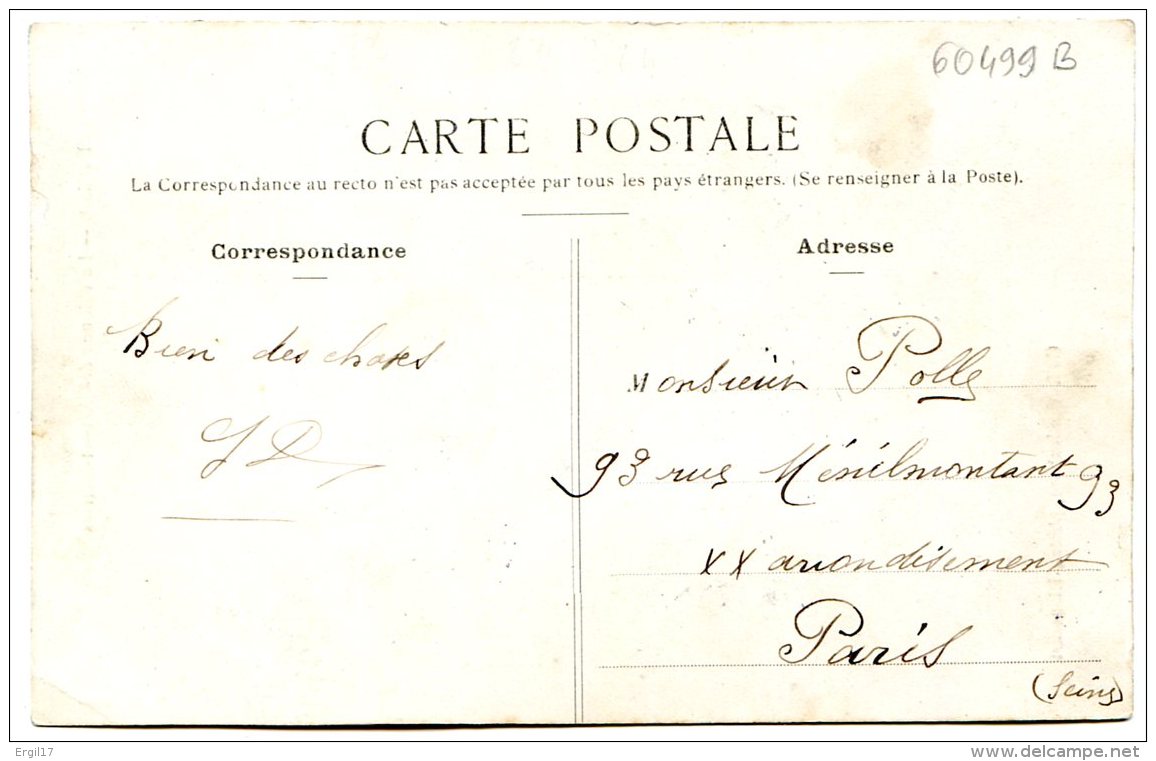 60499 B
CARTE POSTALE
La Correspondance au recto n'est pas acceptée par tous les pays étrangers. (Se renseigner à la Poste).
Correspondance
Adresse
Bien des choses
Monsieur Polle
93 rue Ménilmontant 93
XX arrondisement
Paris
(Seine)
Ergil17
www.delcampe.net